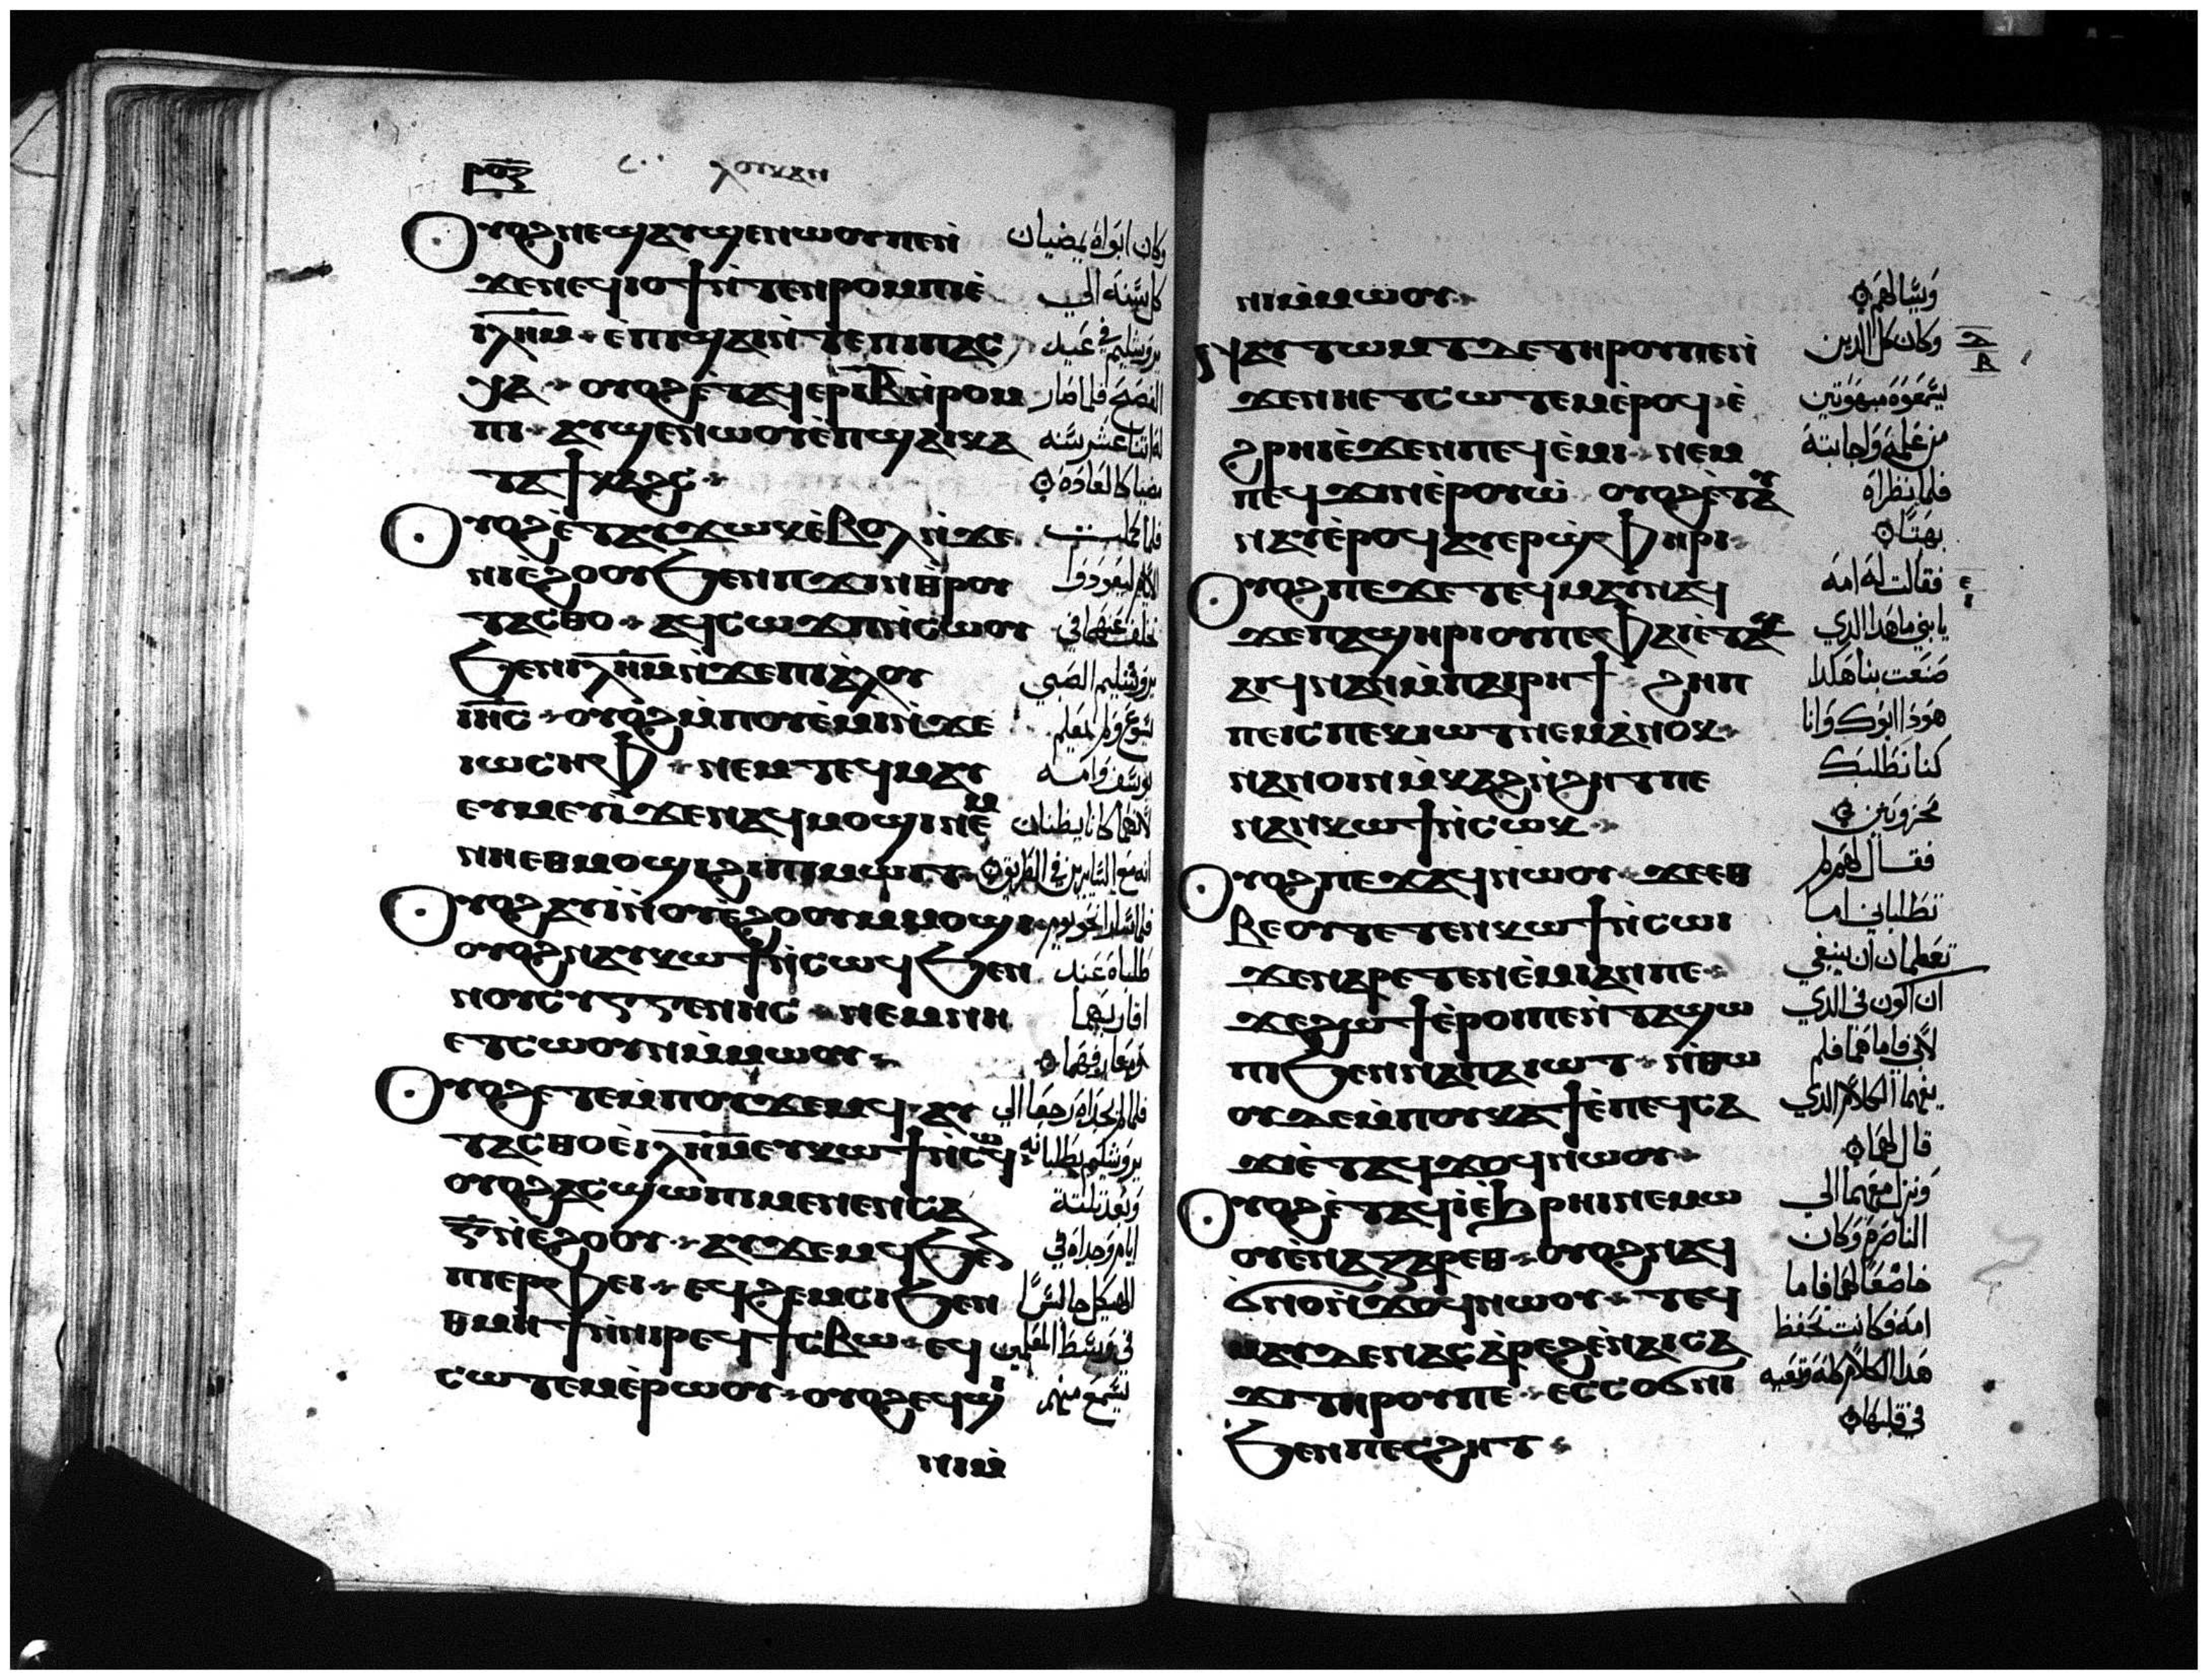 ⲣⲟⲍ
ⲗⲟⲩⲕⲁⲛ
ⲟⲩⲟϩ ⲛⲉϣⲁⲩϣⲉⲛⲱⲟⲩ ⲡⲉ ⲛ̀
ϫⲉ ⲛⲉϥⲓⲟϯ ⲛ̀ⲧⲉⲛⲣⲟⲙⲡⲓ ⲉ̀
ⲓⲗ̅ⲏ̅ⲙ̅ ⲉ̀ⲡϣⲁⲓ ⲛ̀ⲧⲉ ⲡⲓⲡⲁⲥ
ⲭⲁ ⲟⲩⲟϩ ⲉ̀ⲧⲁϥⲉⲣ ⲓ̅ⲃ̅ ⲛ̀ⲣⲟⲙ
ⲡⲓ ⲁⲩϣⲉⲛⲱⲟⲩ ⲉ̀ⲡϣⲁⲓ ⲕⲁ
ⲧⲁ ϯⲕⲁϩⲥ
ⲟⲩⲟϩ ⲉ̀ⲧⲁⲩϫⲱⲕ ⲉ̀ⲃⲟⲗ ⲛ̀ϫⲉ
ⲛⲓⲉϩⲟⲟⲩ ϧⲉⲛ ⲡϫⲓⲛⲑⲣⲟⲩ
ⲧⲁⲥⲑⲟ ⲁϥⲥⲱϫⲡ ⲛ̀ⲥⲱⲟⲩ
ϧⲉⲛ ⲓⲗ̅ⲏ̅ⲙ̅ ⲛ̀ϫⲉ ⲡⲓⲁ̀ⲗⲟⲩ
ⲓⲏ̅ⲥ̅ ⲟⲩⲟϩ ⲙ̀ⲡⲟⲩⲉ̀ⲙⲓ ⲛ̀ϫⲉ
ⲓⲱⲥⲏⲫ ⲛⲉⲙ ⲧⲉϥⲙⲁⲩ
ⲉⲩⲙⲉⲩⲓ̀ ϫⲉ ⲛⲁϥⲙⲟϣⲓ ⲛⲉⲙ
ⲛⲏⲉⲑⲙⲟϣⲓ ϩⲓ ⲡⲓⲙⲱⲓⲧ
ⲟⲩⲟϩ ⲁⲩⲓ̀ ⲛ̀ⲟⲩⲉ̀ϩⲟⲟⲩ ⲙ̀ⲙⲟϣⲓ
ⲟⲩⲟϩ ⲛⲁⲩⲕⲱϯ ⲛ̀ⲥⲱϥ ϧⲉⲛ
ⲛⲟⲩⲥⲩⲅⲅⲉⲛⲏⲥ ⲛⲉⲙ ⲛⲏ
ⲉⲧⲥⲱⲟⲩⲛ ⲙ̀ⲙⲱⲟⲩ
ⲟⲩⲟϩ ⲉⲧⲉ ⲙ̀ⲡⲟⲩϫⲉⲙϥ ⲁⲩ
ⲧⲁⲥⲑⲟ ⲉ̀ⲓⲗ̅ⲏ̅ⲙ̅ ⲉⲩⲕⲱϯ ⲛ̀ⲥⲱϥ
ⲟⲩⲟϩ ⲁⲥϣⲱⲡⲓ ⲙⲉⲛⲉⲛⲥⲁ
ⲅ̅ ⲛ̀ⲉϩⲟⲟⲩ ⲁⲩϫⲉⲙϥ ϧⲉⲛ
ⲡⲓⲉⲣⲫⲉⲓ ⲉϥϩⲉⲙⲥⲓ ϧⲉⲛ
ⲑⲙⲏϯ ⲛ̀ⲛⲓⲣⲉϥϯⲥⲃⲱ ⲉϥ
ⲥⲱⲧⲉⲙ ⲉ̀ⲣⲱⲟⲩ ⲟⲩⲟϩ ⲉϥϣⲓ
ⲛⲓⲙ̀
وكان ابواه يمضيان
كل سنه الي
يروشليم في عيد
الفصح فلما صار
له اثنتا عشر سنه
مضيا كالعاده
فلما كملت
الايام ليعودوا
تخلف عنهما في
يروشليم الصبي
يسوع ولم يعلم
يوسف وامه
لانهما كانا يظنان
انه مع السايرين في الطريق
فلما سارا نحو يوم
طلباه عند
اقاربهما
ومعارفهما
فلما لم يجداه رجعا الي
يروشليم يطلبانه
وبعد ثلثة
ايام وجداه في
الهيكل جالسًا
في وسط المعلمين
يسمع منهم
ⲛⲓ ⲙ̀ⲙⲱⲟⲩ
ⲛⲁⲩⲧⲱⲙⲧ ⲇⲉ ⲧⲏⲣⲟⲩ ⲡⲉ ⲛ̀
ϫⲉ ⲛⲏⲉⲧⲥⲱⲧⲉⲙ ⲉ̀ⲣⲟϥ ⲉ̀
ϩⲣⲏⲓ ⲉ̀ϫⲉⲛ ⲡⲉϥⲉ̀ⲙⲓ ⲛⲉⲙ
ⲡⲉϥϫⲓⲛⲉ̀ⲣⲟⲩⲱ̀ ⲟⲩⲟϩ ⲉ̀ⲧⲁⲩ
ⲛⲁⲩ ⲉ̀ⲣⲟϥ ⲁⲩⲉⲣϣ̀ⲫⲏⲣⲓ
ⲟⲩⲟϩ ⲡⲉϫⲉ ⲧⲉϥⲙⲁⲩ ⲛⲁϥ
ϫⲉ ⲡⲁϣⲏⲣⲓ ⲟⲩ ⲡⲉ ⲫⲁⲓ ⲉ̀ⲧⲁⲕ
ⲁⲓϥ ⲛⲁⲛ ⲙ̀ⲡⲁⲓⲣⲏϯ ϩⲏⲡ
ⲡⲉ ⲓⲥ ⲡⲉⲕⲓⲱⲧ ⲛⲉⲙ ⲁ̀ⲛⲟⲕ
ⲛⲁⲛⲟⲓ ⲛ̀ⲙ̀ⲕⲁϩ ⲛ̀ϩⲏⲧ ⲡⲉ
ⲛⲁⲛⲕⲱϯ ⲛ̀ⲥⲱⲕ
ⲟⲩⲟϩ ⲡⲉϫⲁϥ ⲛⲱⲟⲩ ϫⲉ ⲉⲑ
ⲃⲉ ⲟⲩ ⲧⲉⲧⲉⲛⲕⲱϯ ⲛ̀ⲥⲱⲓ
ϫⲉ ⲛⲁⲣⲉⲧⲉⲛⲉ̀ⲙⲓ ⲁⲛ ⲡⲉ
ϫⲉ ϩⲱϯ ⲉ̀ⲣⲟⲓ ⲡⲉ ⲛ̀ⲧⲁϣⲱ
ⲡⲓ ϧⲉⲛ ⲛⲁ ⲡⲁⲓⲱⲧ ⲛ̀ⲑⲱ
ⲟⲩ ⲇⲉ ⲙ̀ⲡⲟⲩⲕⲁϯ ⲉ̀ⲡⲉϥⲥⲁ
ϫⲓ ⲉ̀ⲧⲁϥϫⲟϥ ⲛⲱⲟⲩ
ⲟⲩⲟϩ ⲉ̀ⲧⲁϥⲓ̀ ⲉ̀ϧⲣⲏⲓ ⲛⲉⲙⲱ
ⲟⲩ ⲉ̀ⲛⲁⲍⲁⲣⲉⲑ ⲟⲩⲟϩ ⲛⲁϥ
ϭⲛⲟⲛ̀ϫⲱϥ ⲛⲱⲟⲩ ⲧⲉϥ
ⲙⲁⲩ ⲇⲉ ⲛⲁⲥⲁ̀ⲣⲉϩ ⲉ̀ⲛⲁⲓⲥⲁ
ϫⲓ ⲧⲏⲣⲟⲩ ⲡⲉ ⲉⲥⲥⲟϭⲛⲓ
ϧⲉⲛ ⲡⲉⲥϩⲏⲧ
ويسالهم
وكان كل الدين
يسمعوه مبهوتين
من علمه واجابته
فلما نظراه
بهتا
فقالت له امه
يا بني ما هدا الدي
صنعت بنا هكدا
هودا ابوك وانا
كنا نطلبك
محزونين
فقال لهم لم
تطلباني اما
تعلمان ان ينبغي
ان اكون في الدي
لابي فاما هما فلم
يفهما الكلام الدي
قال لهما
ونزل معهما الي
الناصره وكان
خاضعًا لهما فاما
امه فكانت تحفظ
هدا الكلام كله وتعيه
في قلبها